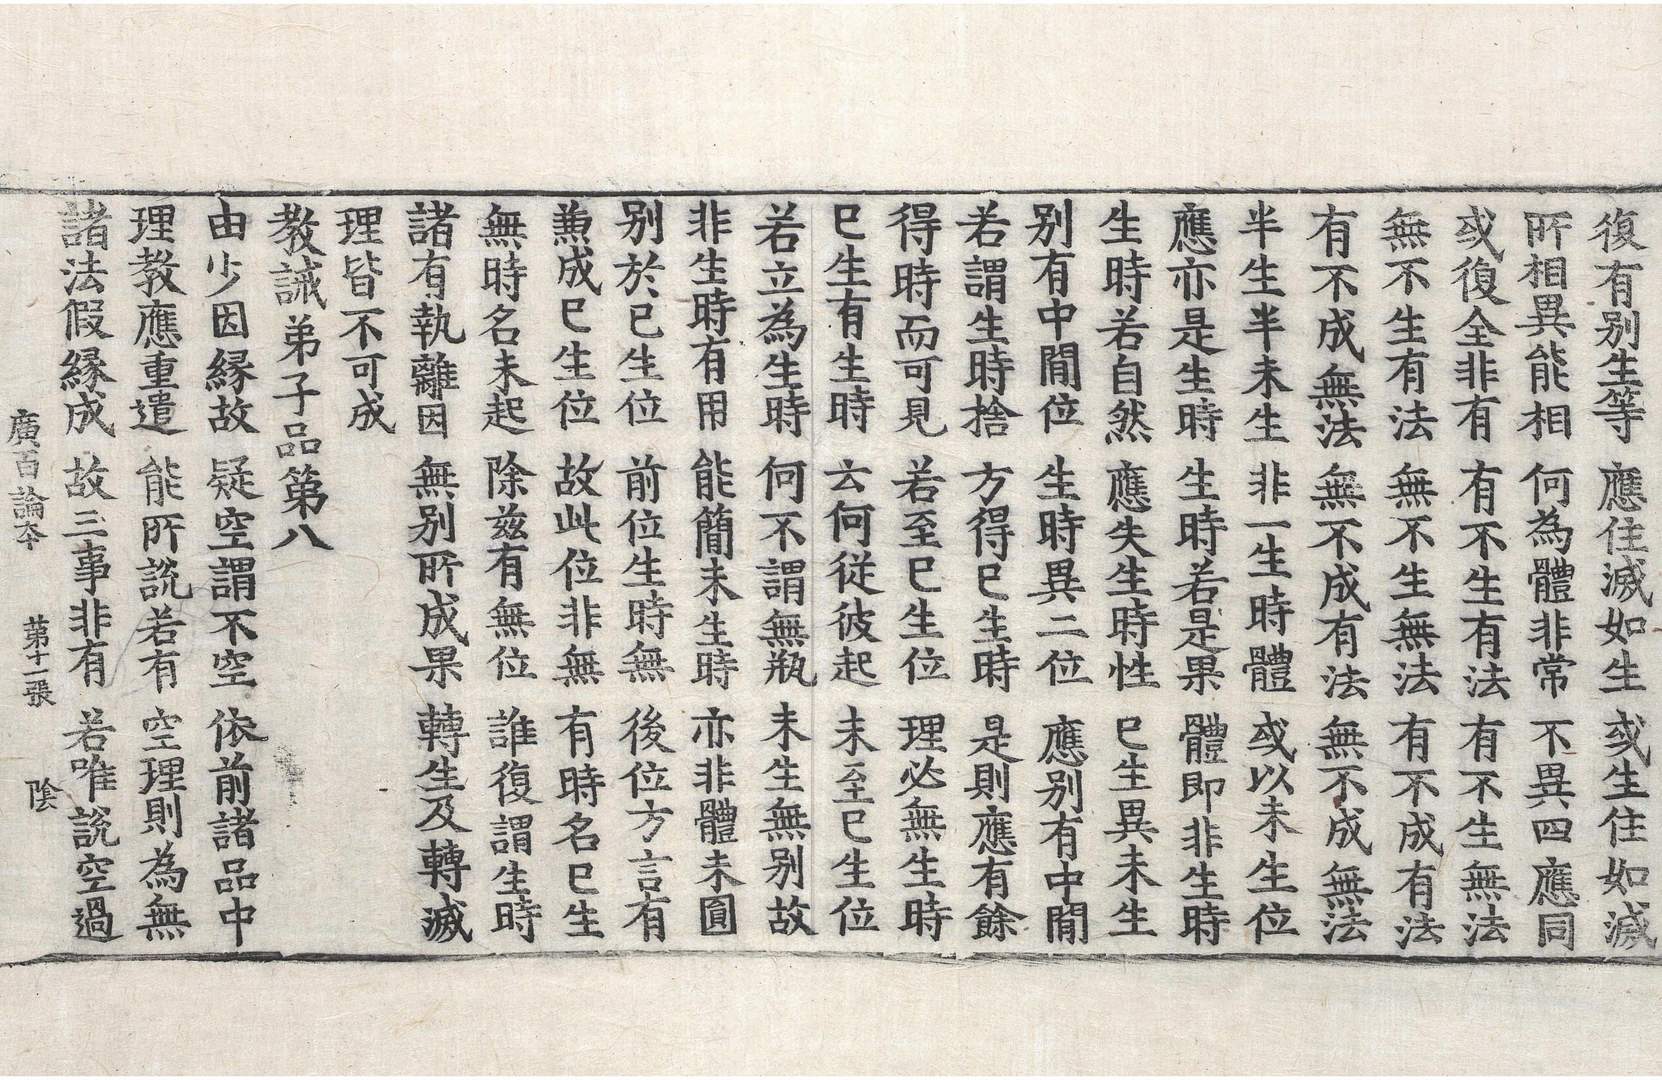 復有別生等 應住滅如生 或生住如滅
所相異能相 何為體非常 不異四應同
或復全非有 有不生有法 有不生無法
無不生有法 無不生無法 有不成有法
有不成無法 無不成有法 無不成無法
半生半未生 非一生時體 或以未生位
應亦是生時 生時若是果 體即非生時
生時若自然 應失生時性 已生異未生
別有中間位 生時異二位 應別有中間
若謂生時捨 方得已生時 是則應有餘
得時而可見 若至已生位 理必無生時
已生有生時 云何從彼起 未至已生位
若立為生時 何不謂無瓶 未生無別故
非生時有用 能簡未生時 亦非體未圓
別於已生位 前位生時無 後位方言有
兼成已生位 故此位非無 有時名已生
無時名未起 除茲有無位 誰復謂生時
諸有執離因 無別所成果 轉生及轉滅
理皆不可成
教誡弟子品第八
由少因緣故 疑空謂不空 依前諸品中
理教應重遣 能所說若有 空理則為無
諸法假緣成 故三事非有 若唯說空過
廣百論夲 第十一張 陰